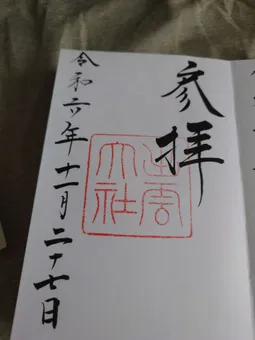 参拝
出雲大社
令和六年十一月二十七日